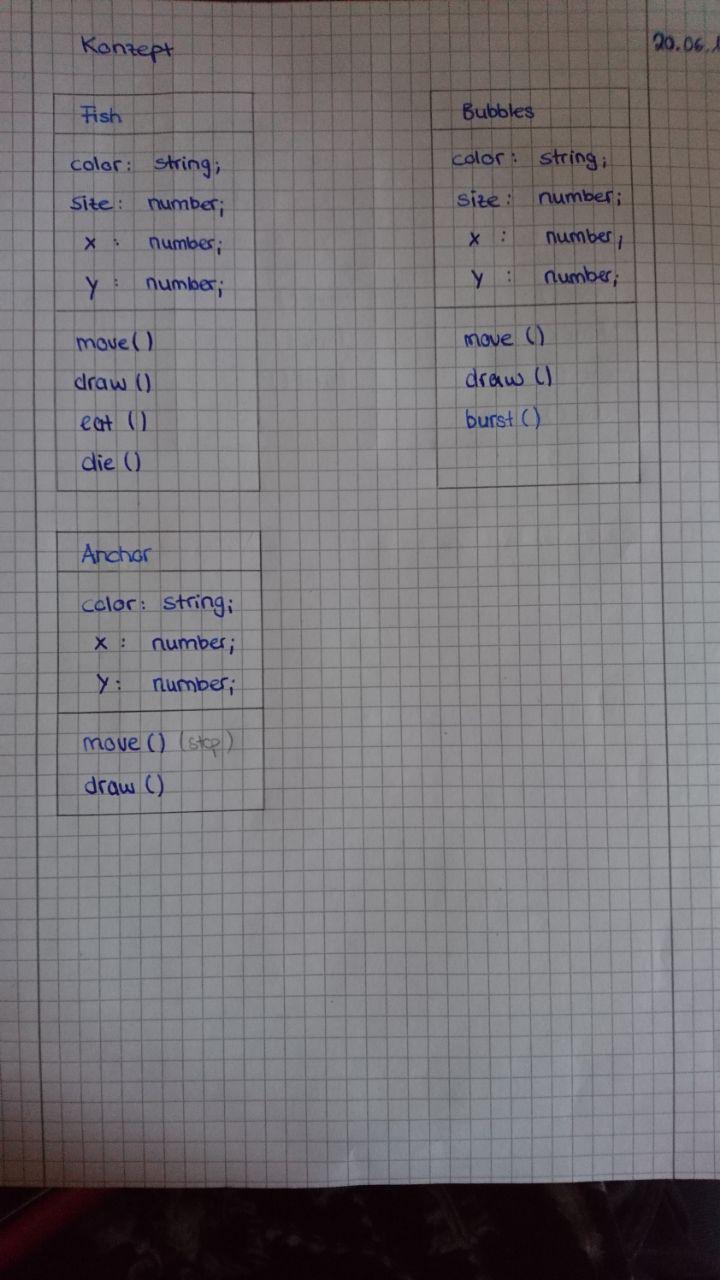 Konzept
20.06.1
Fish
color: string;
size: number;
x : number;
y : number;
move()
draw ()
eat ()
die ()
Bubbles
color: string;
size: number;
x : number;
y : number;
move ()
draw ()
burst ()
Anchor
color: string;
x : number;
y: number;
move () (stop)
draw ()